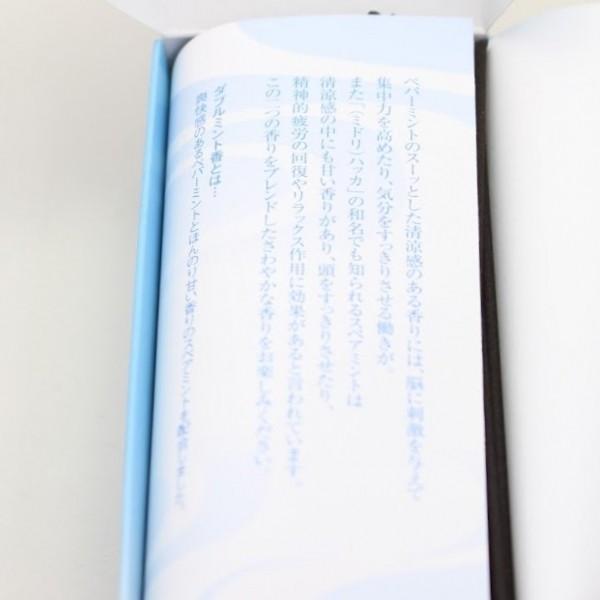 ペパーミントのスーッとした清涼感のある香りには、脳に刺激を与えて
集中力を高めたり、気分をすっきりさせる働きが。
また「(ミドリ)ハッカ」の和名でも知られるスペアミントは
清涼感の中にも甘い香りがあり、頭をすっきりさせたり、
精神的疲労の回復やリラックス作用に効果があると言われています。
この二つの香りをブレンドしたさわやかな香りをお楽しみください。
ダブルミント香とは…
爽快感のあるペパーミントとほんのり甘い香りのスペアミントを配合しました。